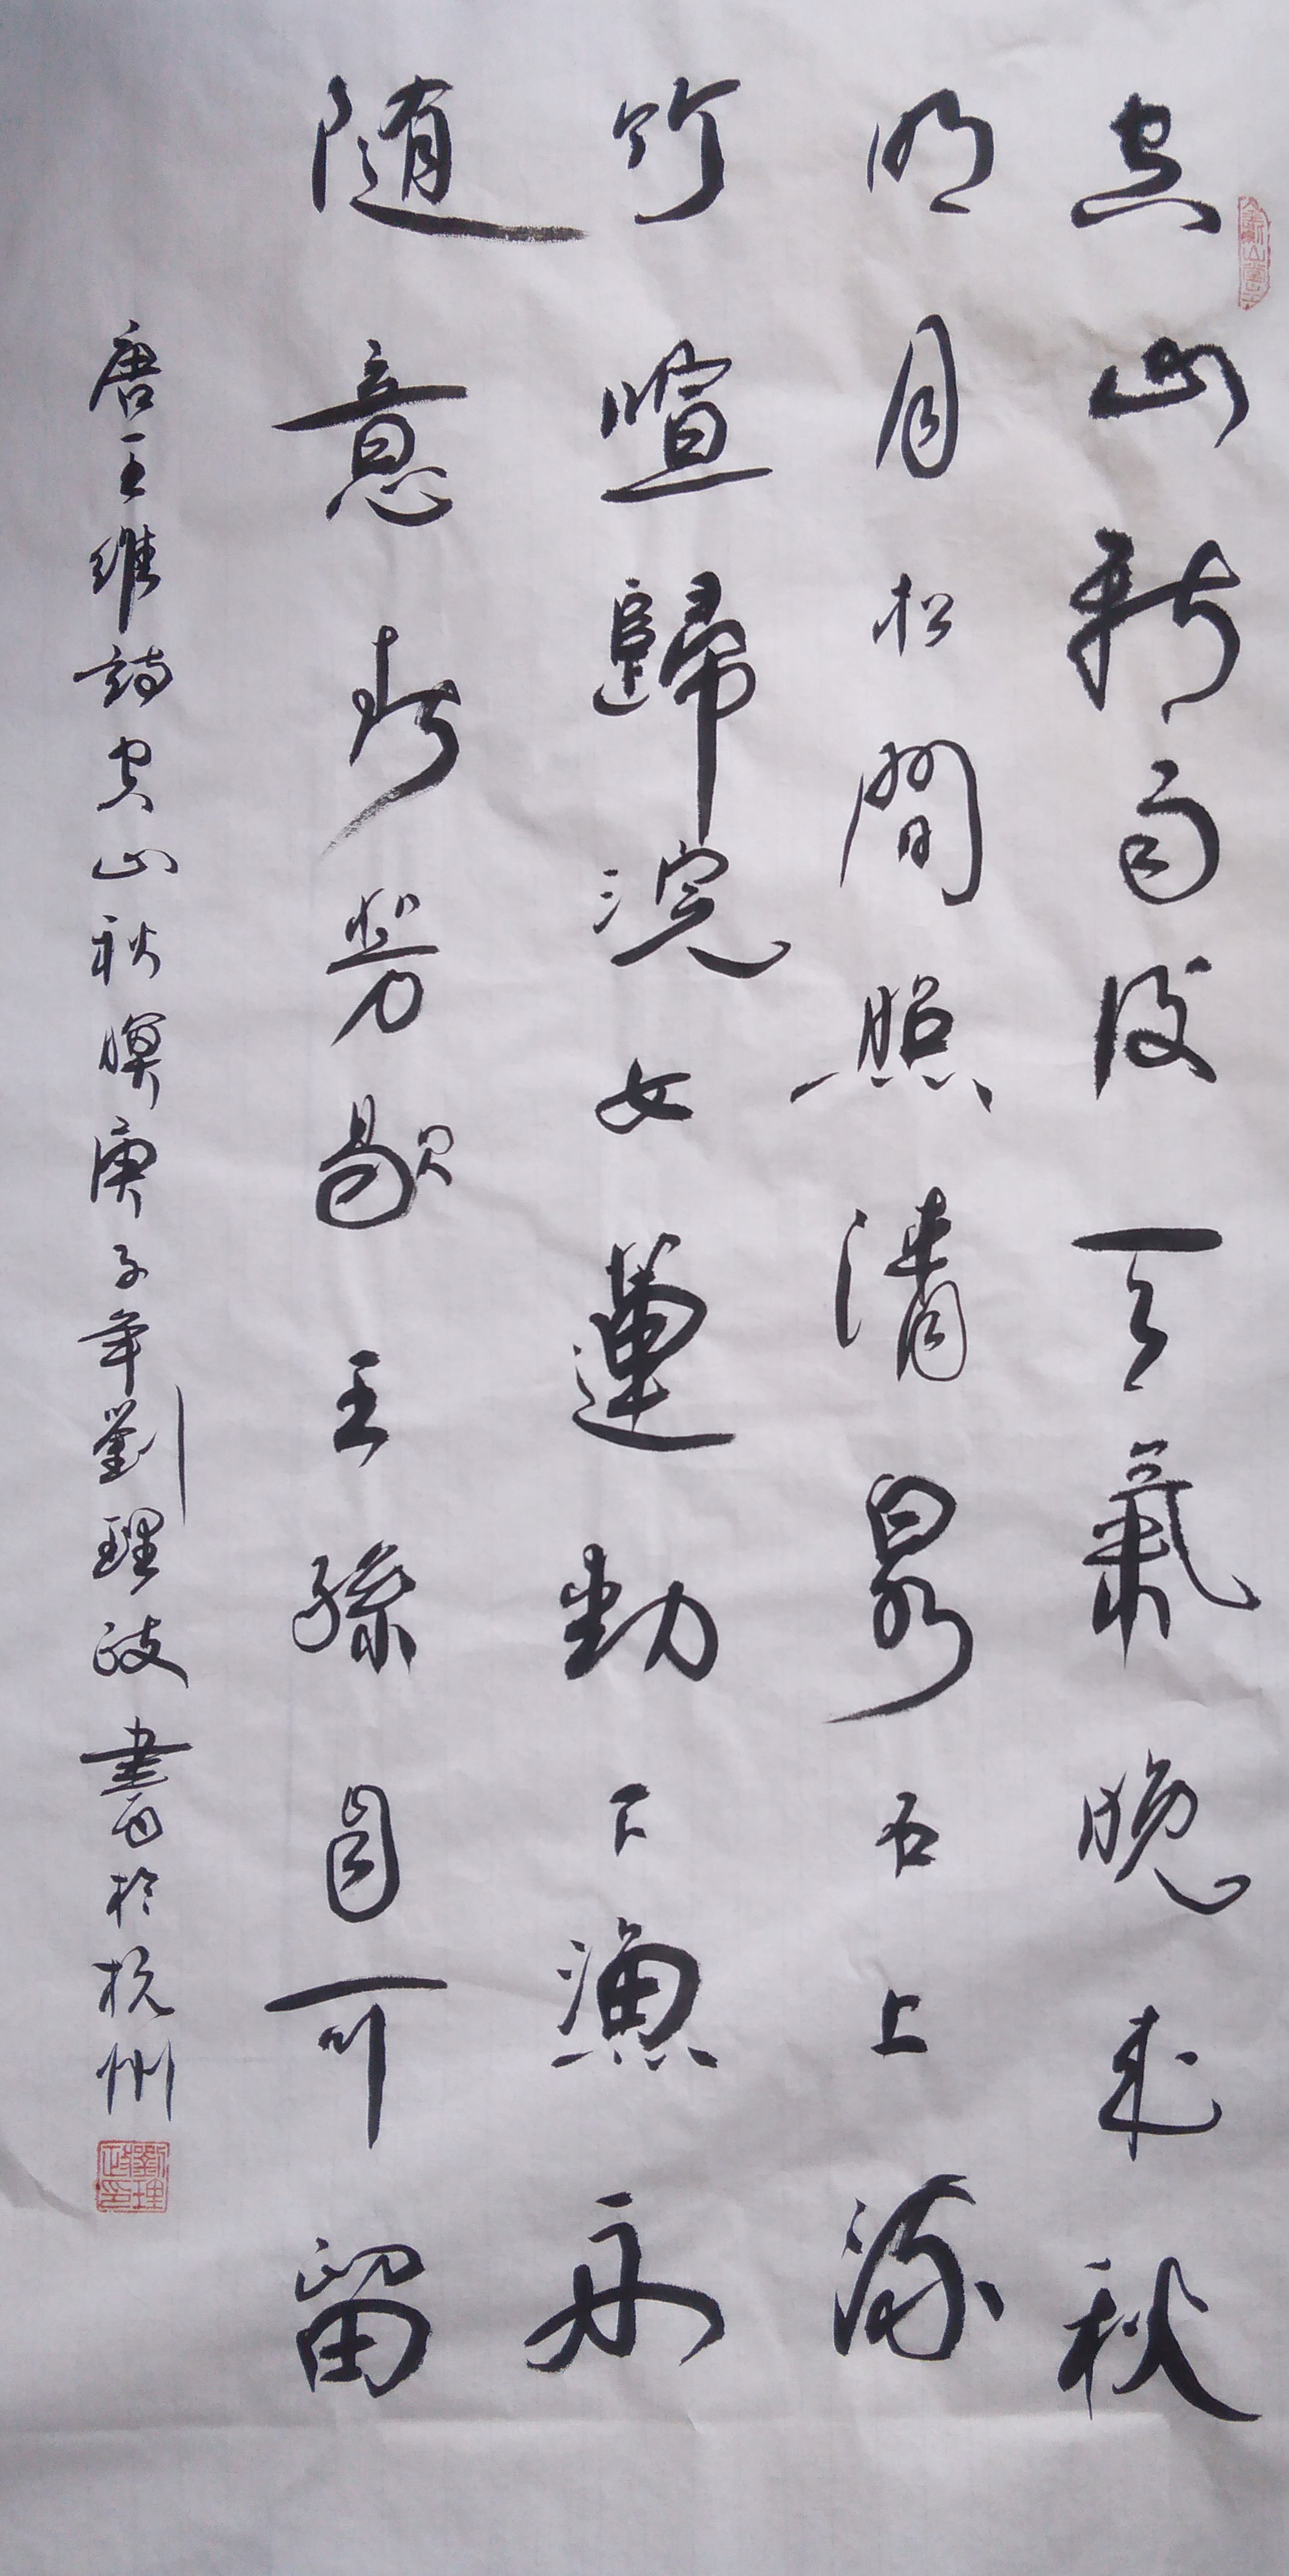 空山新雨後天氣晚來秋
明月松間照清泉石上流
竹喧歸浣女蓮動下漁舟
随意春芳歇王孫自可留
唐王維詩空山秋暝庚子年劉理政書於杭州
劉理政印